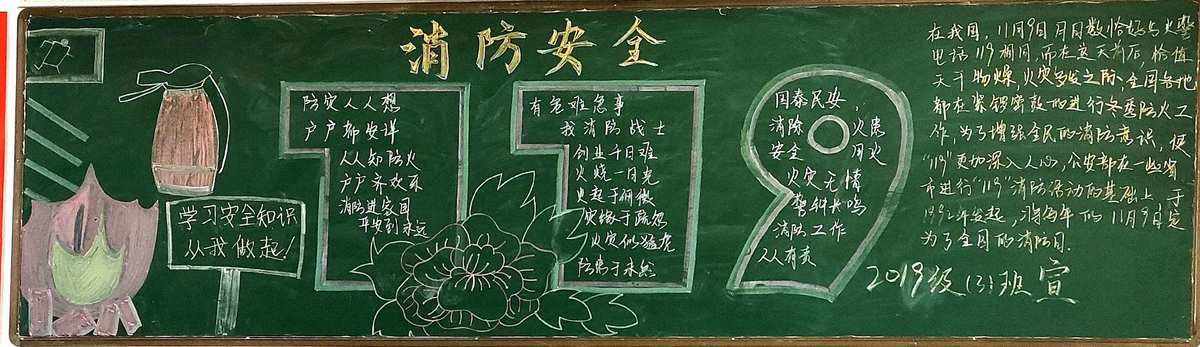 消防安全
学习安全知识
从我做起!
防灾人人想
户户都安详
人人知防火
户户齐欢乐
消防进家园
平安到永远
有危难急事
我消防战士
创业千日难
火烧一日光
火起于稍微
灾缘于疏忽
火灾似猛虎
防患于未然
国泰民安,
消除 火患
安全 用火
火灾无情
警钟长鸣
消防工作
人人有责
在我国,11月9日月日数恰好与火警
电话119相同,而在这天前后,恰值
天干物燥,火灾多发之际,全国各地
都在紧锣密鼓的进行冬季防火工
作,为了增强全民的消防意识,使
“119”更加深入人心,公安部在一些省
市进行“119”消防活动的基础上,于
1992年发起,将每年的11月9日定
为了全国的消防日.
2019级(3)班宣